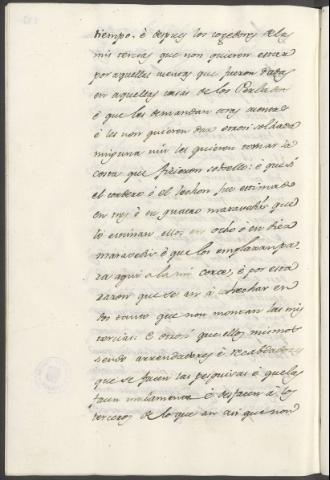 tiempo. é despues los cogedores de las
mis tercias que non quieren estar
por aquellas avenencias que fueron dadas
en aquellas casas de los Perlados
é que les demandan otras cuentas
é les non quieren dar otrosi soldada
ninguna nin les quieren tomar la
costa que ficieron sobrello: é que si
el cordero é el lechon fue estimado
en tres é en quatro maravedis que
lo estiman ellos en ocho é en diez
maravedis é que los emplazan pa
ra aqui a la mi corte, é por esta
razon que se an á cohechar en
tos tanto que non montan las mis
tercias. E otrosi que ellos mismos
seendo arrendadores é recabdadores
que se facen las pesquisas é que las
facen malamente é desfacen á los
terceros de lo que an asi que non